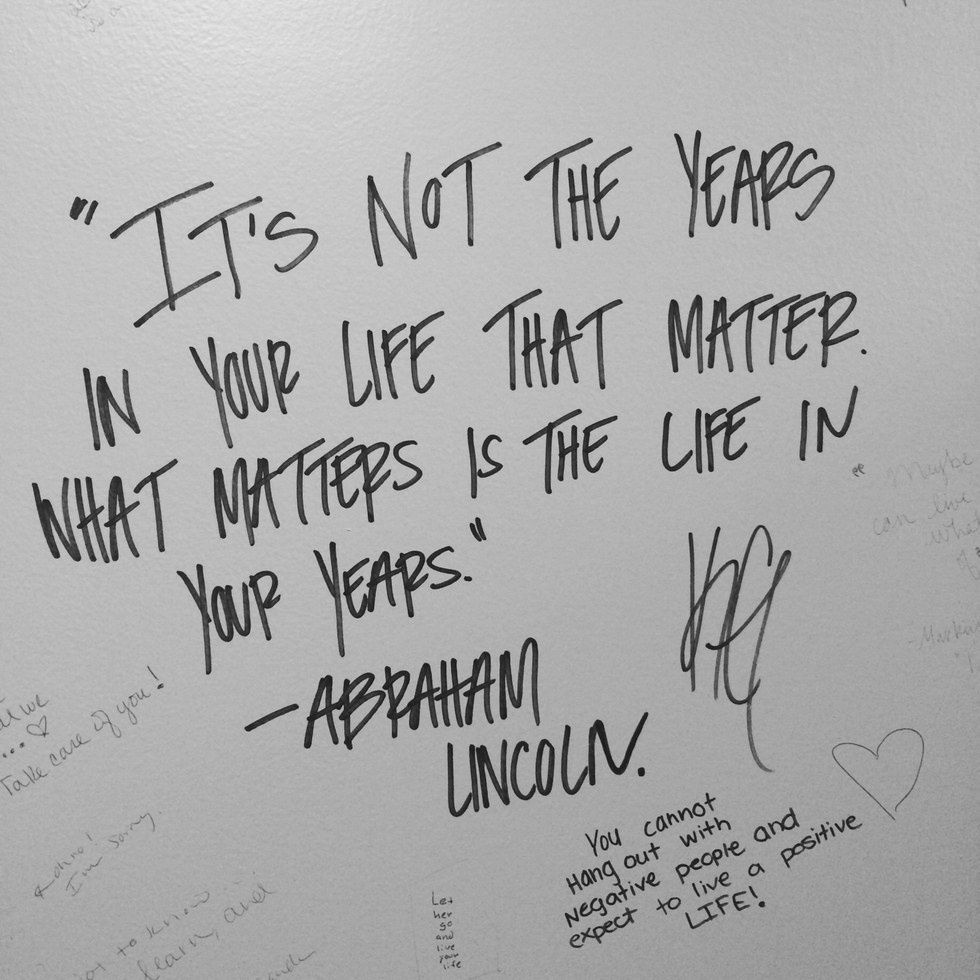 "IT'S NOT THE YEARS
IN YOUR LIFE THAT MATTER.
WHAT MATTERS IS THE LIFE IN
YOUR YEARS."
—ABRAHAM
LINCOLN.
" Maybe
can live
-Mark
we
...♡
Take care of you!
I'm sorry.
to know
learn, and
Let
her
go
and
live
your
life
You cannot
Hang out with
Negative people and
expect to live a positive
LIFE!